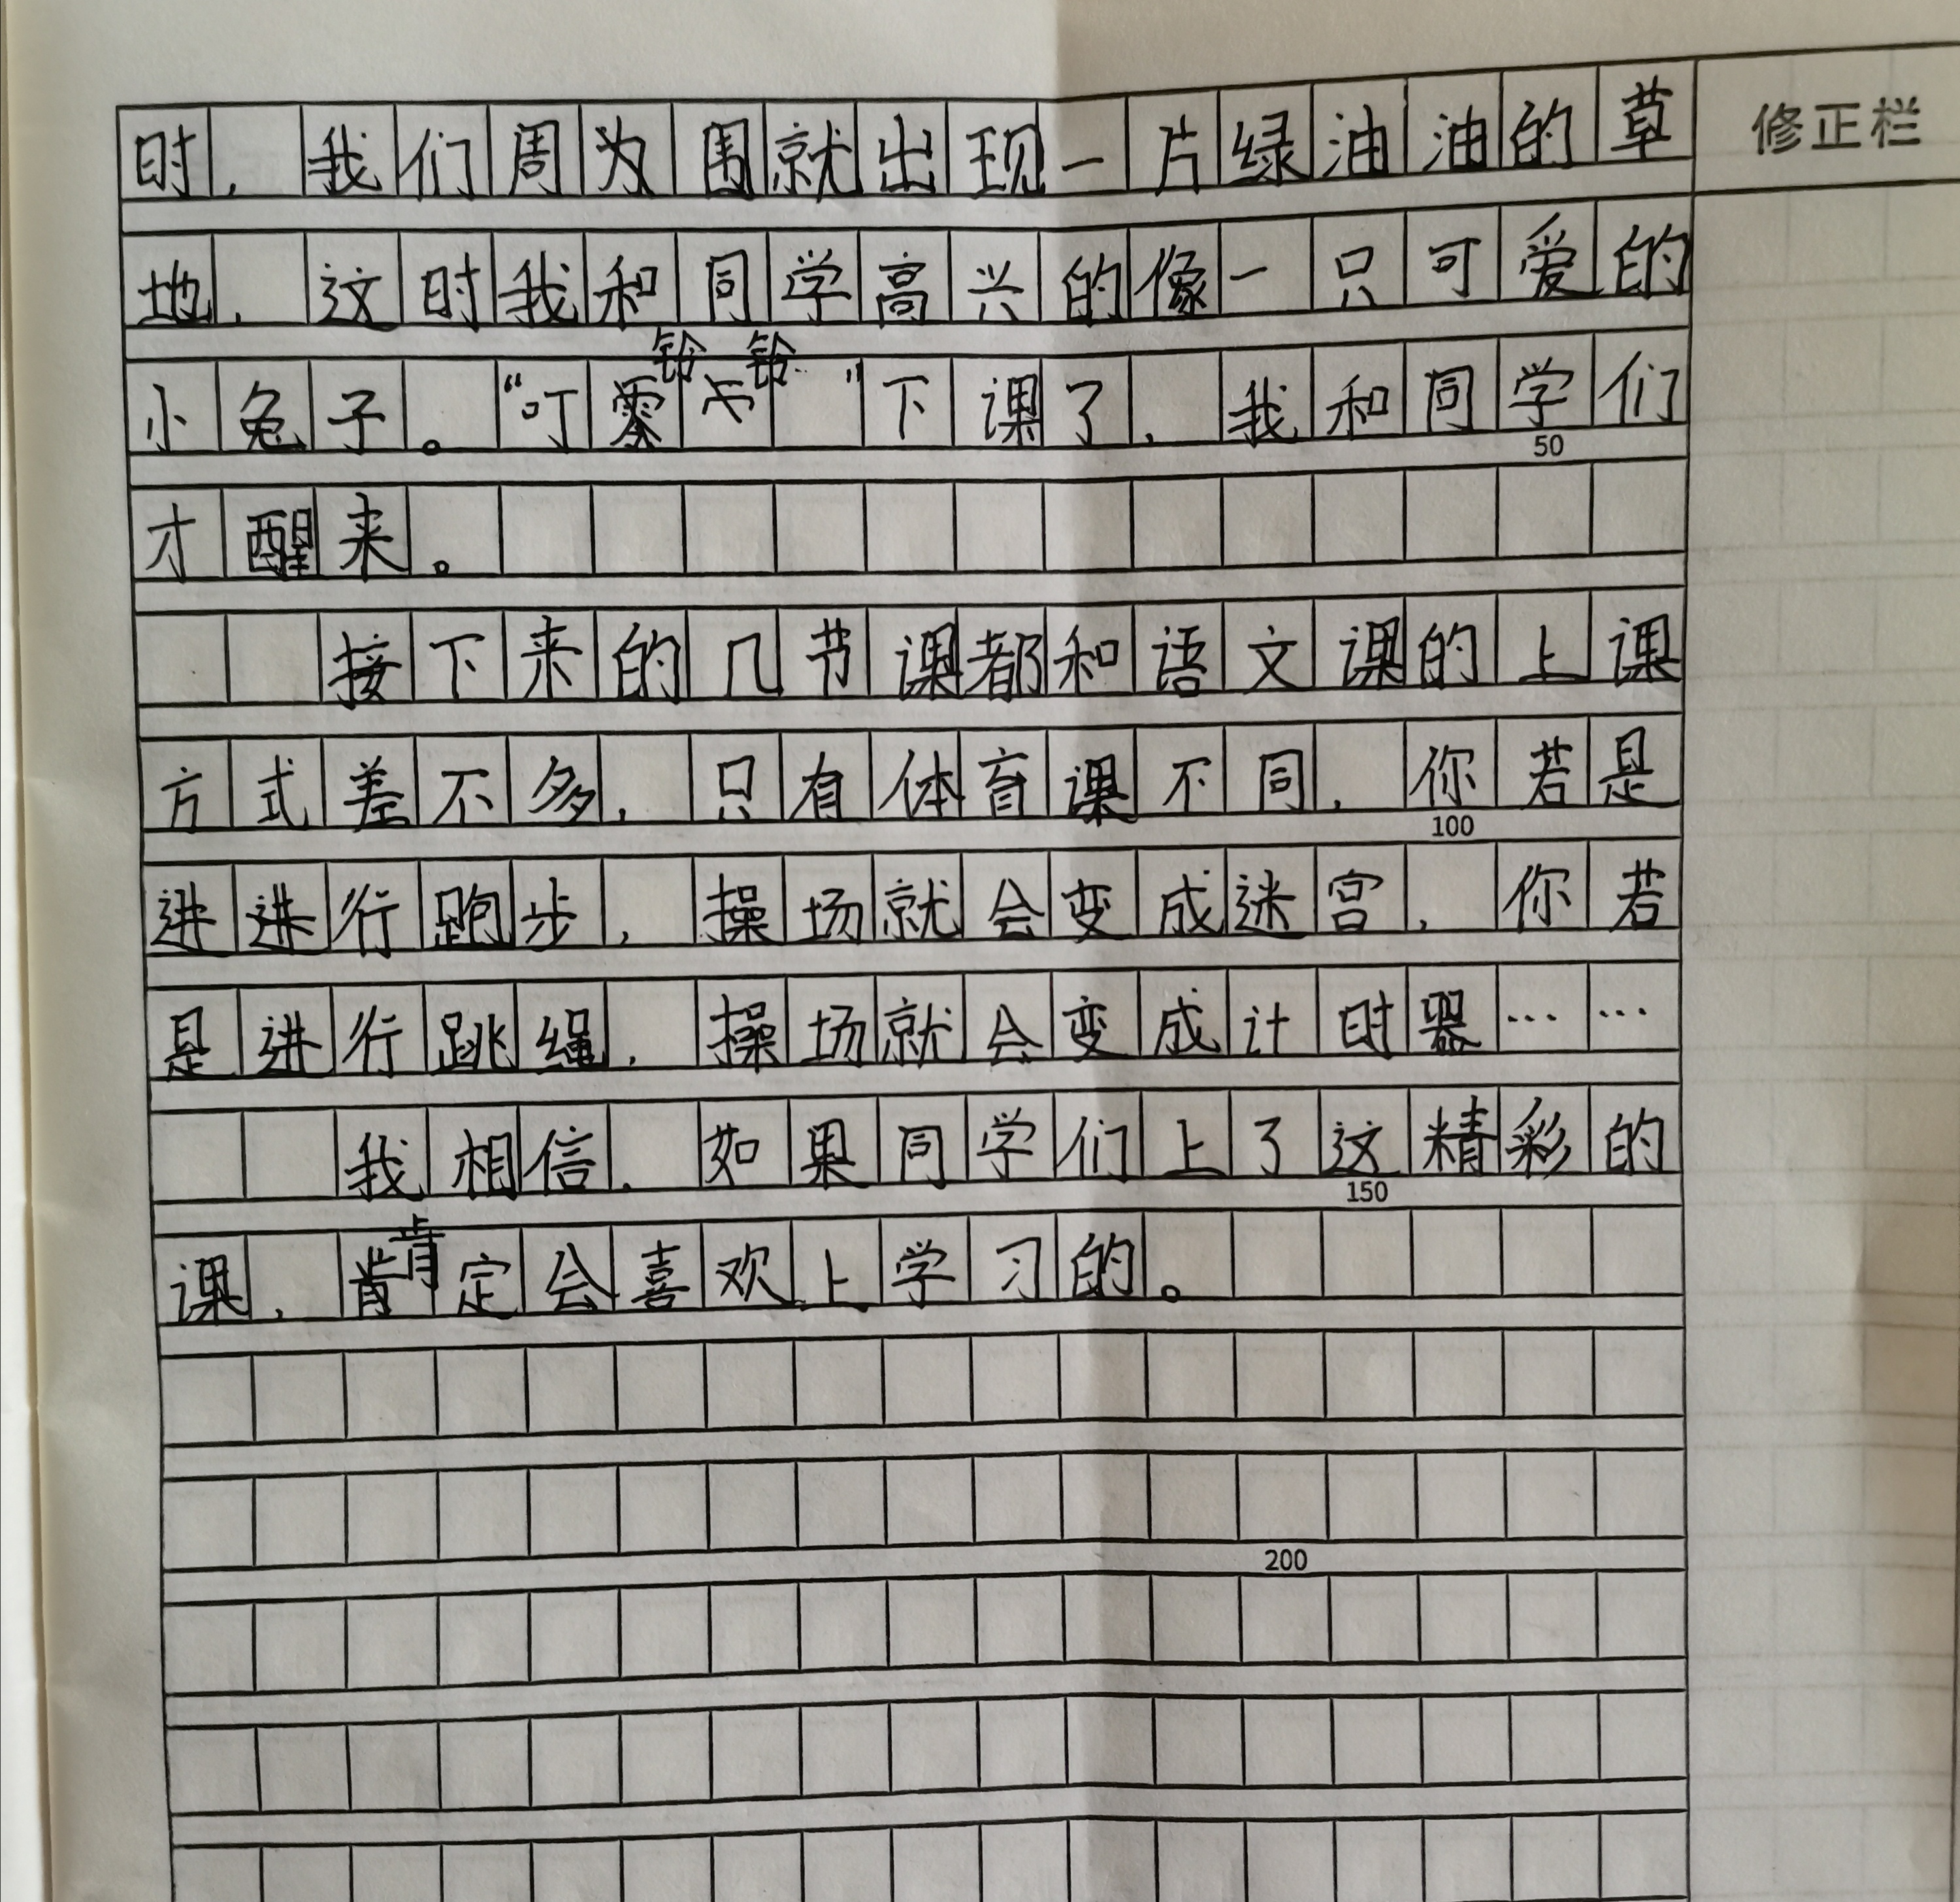 时，我们周为围就出现一片绿油油的草
修正栏
地，这时我和同学高兴的像一只可爱的
铃铃
小兔子。“叮零”下课了，我和同学们
50
才醒来。
接下来的几节课都和语文课的上课
方式差不多，只有体育课不同，你若是
100
进进行跑步，操场就会变成迷宫，你若
是进行跳绳，操场就会变成计时器……
我相信，如果同学们上了这精彩的
150
课，肯肯定会喜欢上学习的。
200